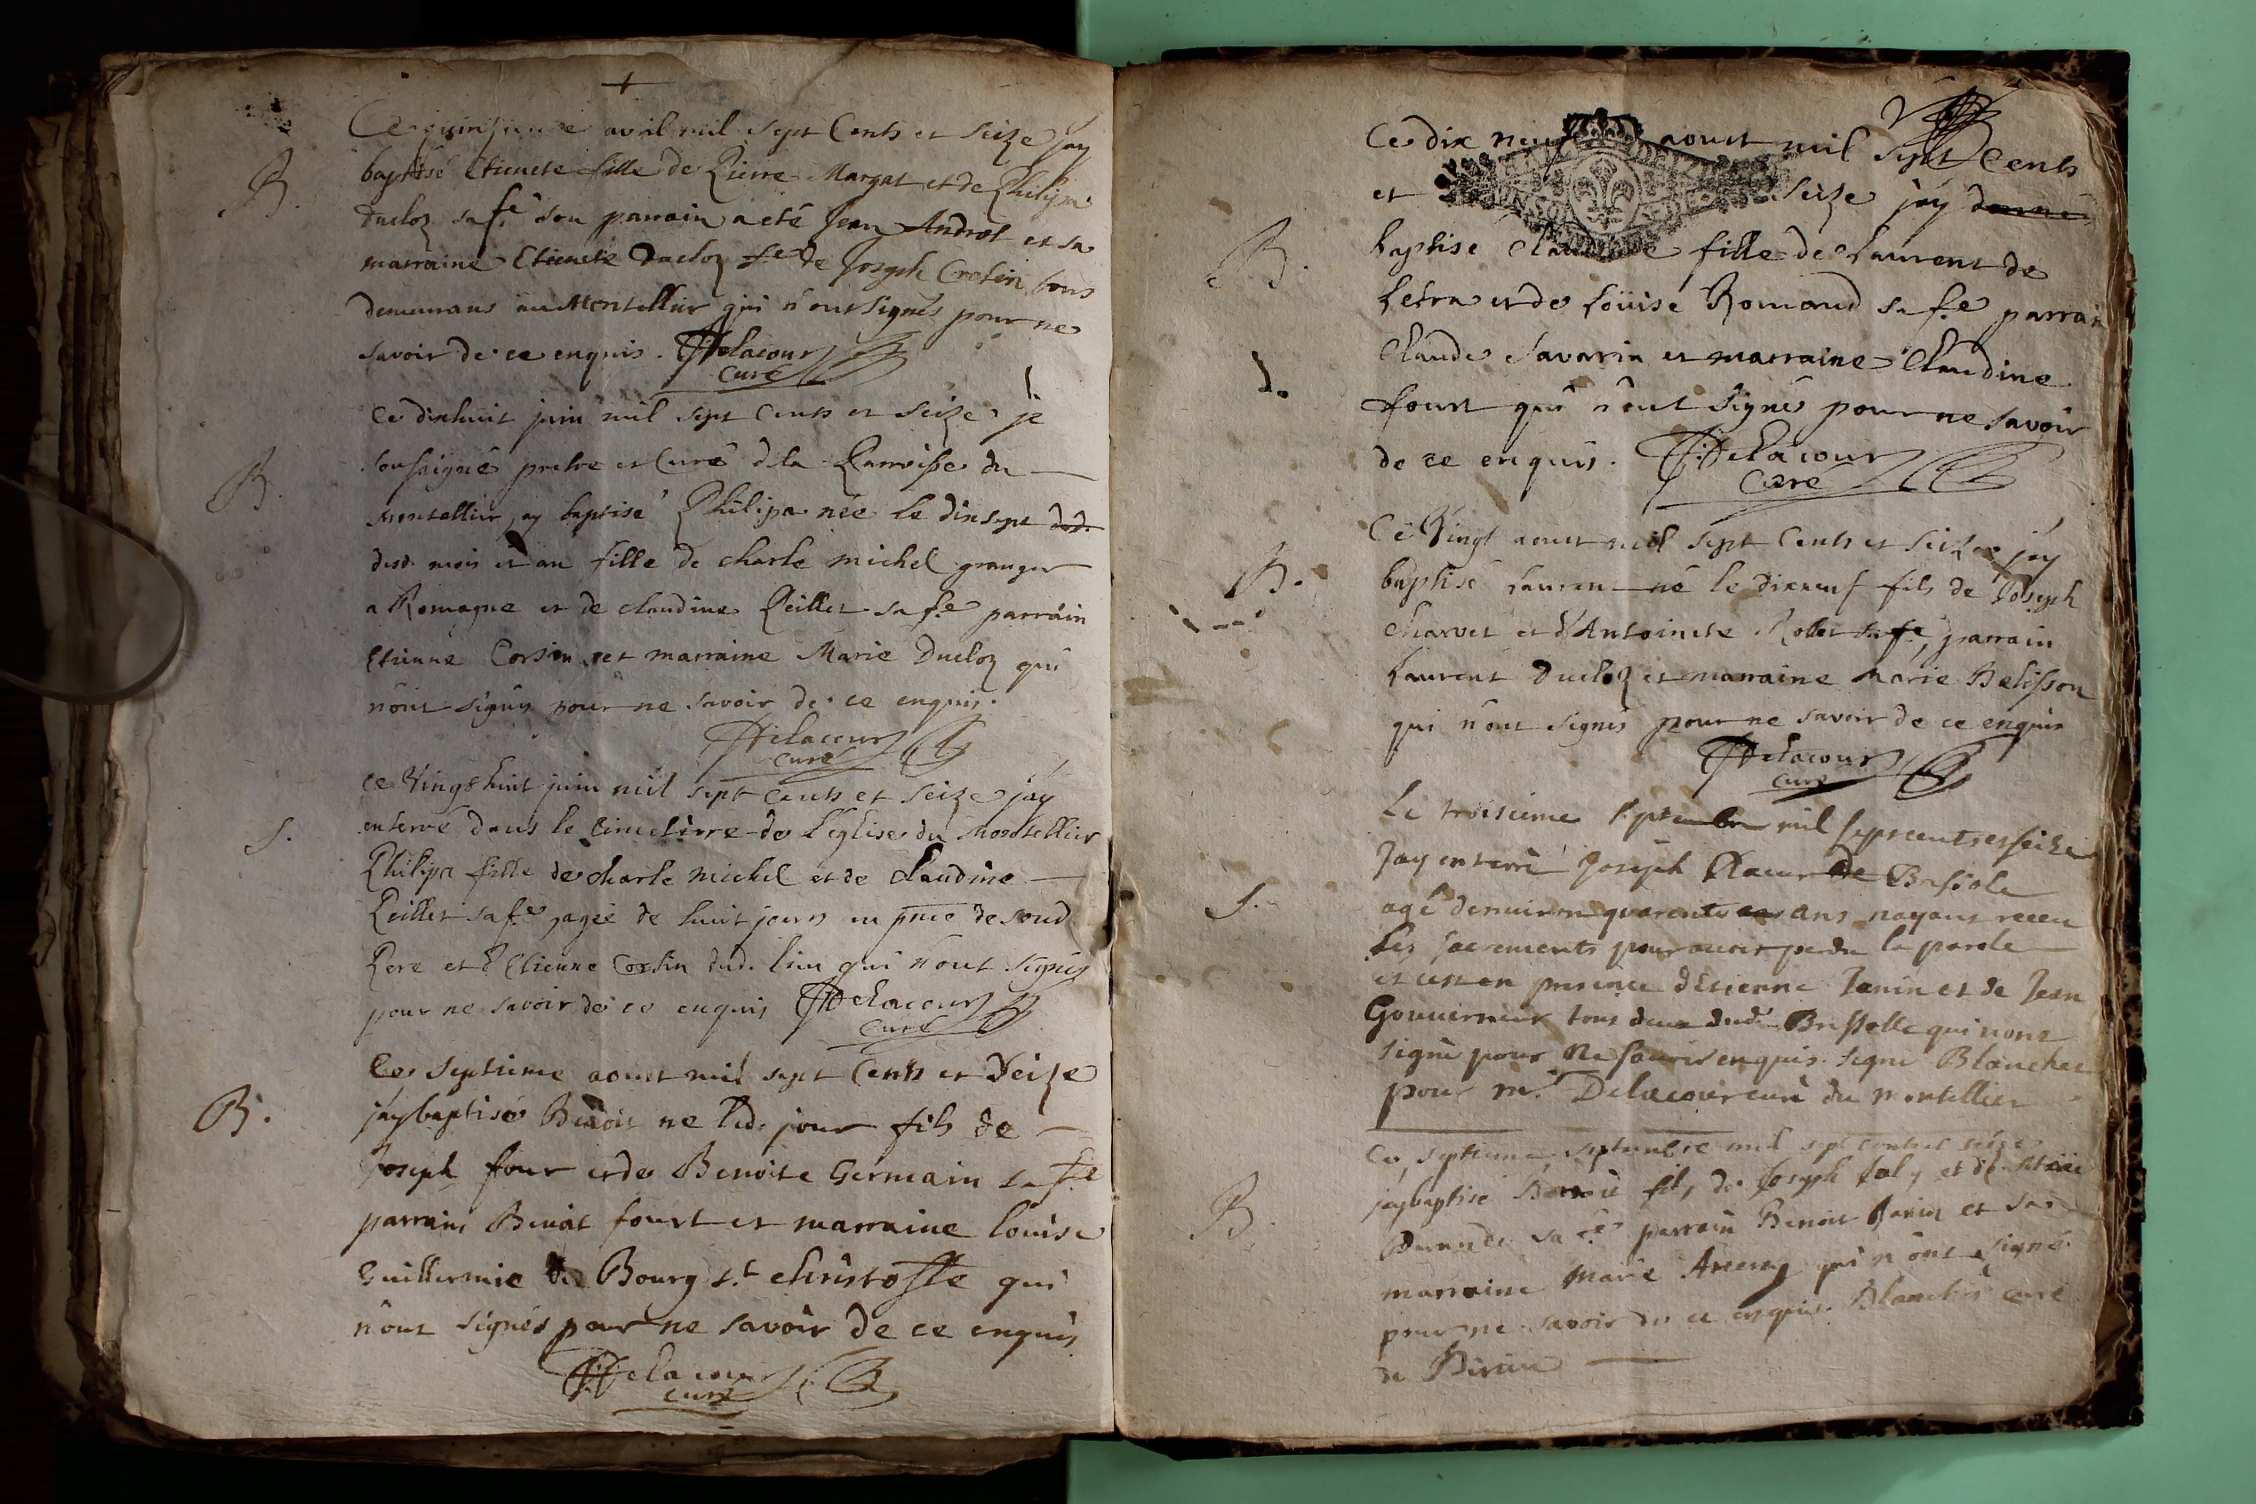 Ce quinzieme avril mil sept Cents et seize jay
B.
baptisé Etienete fille de Pierre Margat et de Philipa
Ducloz sa fe son parrain a eté Jean Andrót et sa
marraine Etienete Ducloz fe de Joseph Crotin tous
demeurans au Montellier qui n'ont signés pour ne
savoir de ce enquis. Delacour
curé
Ce dixhuit juin mil sept Cents et seize je
soussigné prestre et Curé dela Parroisse du
B.
Montellier, ay baptisé Philipa née le dixsept
dud. mois et an fille de charle michel granger
a Romagne et de claudine Peillet sa fe parrain
Etienne Corsin et marraine Marie Ducloz qui
n'ont signés pour ne savoir de ce enquis.
Delacour
curé
ce Vingt huit juin mil sept cents et seize jay
S.
enterré dans le cimetierre de l'église du Montellier
Philipa fille de charle michel et de Claudine
Peillet sa fe, agée de huit jours en pnce de sond.
Pere et d'Etienne Corsin dud. lieu qui n'ont signés
pour ne savoir de ce enquis Delacour
curé
Ce septieme aoust mil sept Cents et seize
B.
jay baptisé Benoit ne led. jour fils de
Joseph four et de Benoite Germain sa fe
parrain Benoit fourt et marraine louise
Guillermie de Bourg st christofle qui
n'ont signés pour ne savoir de ce enquis
Delacour
curé
Ce dix neuf aoust mil sept Cents
et seize jay
B.
baptise Claudine fille de Laurent de
Letra et de Loüise Romand sa fe parrain
Claude Savarin et marraine Claudine
fourt qui n'ont signés pour ne savoir
de ce enquis. Delacour
Curé
Ce Vingt aoust mil sept Cents et seize jay
B.
baptisé Laurent né le dixneuf fils de Joseph
Charvet et d'Antoinete Rollet sa fe, parrain
Laurent Ducloz et marraine Marie Belisson
qui n'ont signés pour ne savoir de ce enquis
Delacour
curé
Le troisieme septembre mil sept cents et seize
Jay enterré Joseph de Bressole
S.
agé denviron quarente ans nayant receu
les sacrements pour avoir perdu la parole
et cest en presence d'Etienne Janin et de Jean
Gouverneur tous deux dud. Bressolle qui n'ont
signé pour ne savoir enquis. signé Blanchet
pour mr. Delacour curé du montellier
Ce septieme septembre mil sept cents et seize
B.
jay baptisé Benoit fils de Joseph Joly et de
Durande sa fe parrain Benoit Janin et sa
marraine Marie qui n'ont signé
pour ne savoir de ce enquis. Blanchet curé
de Birieu